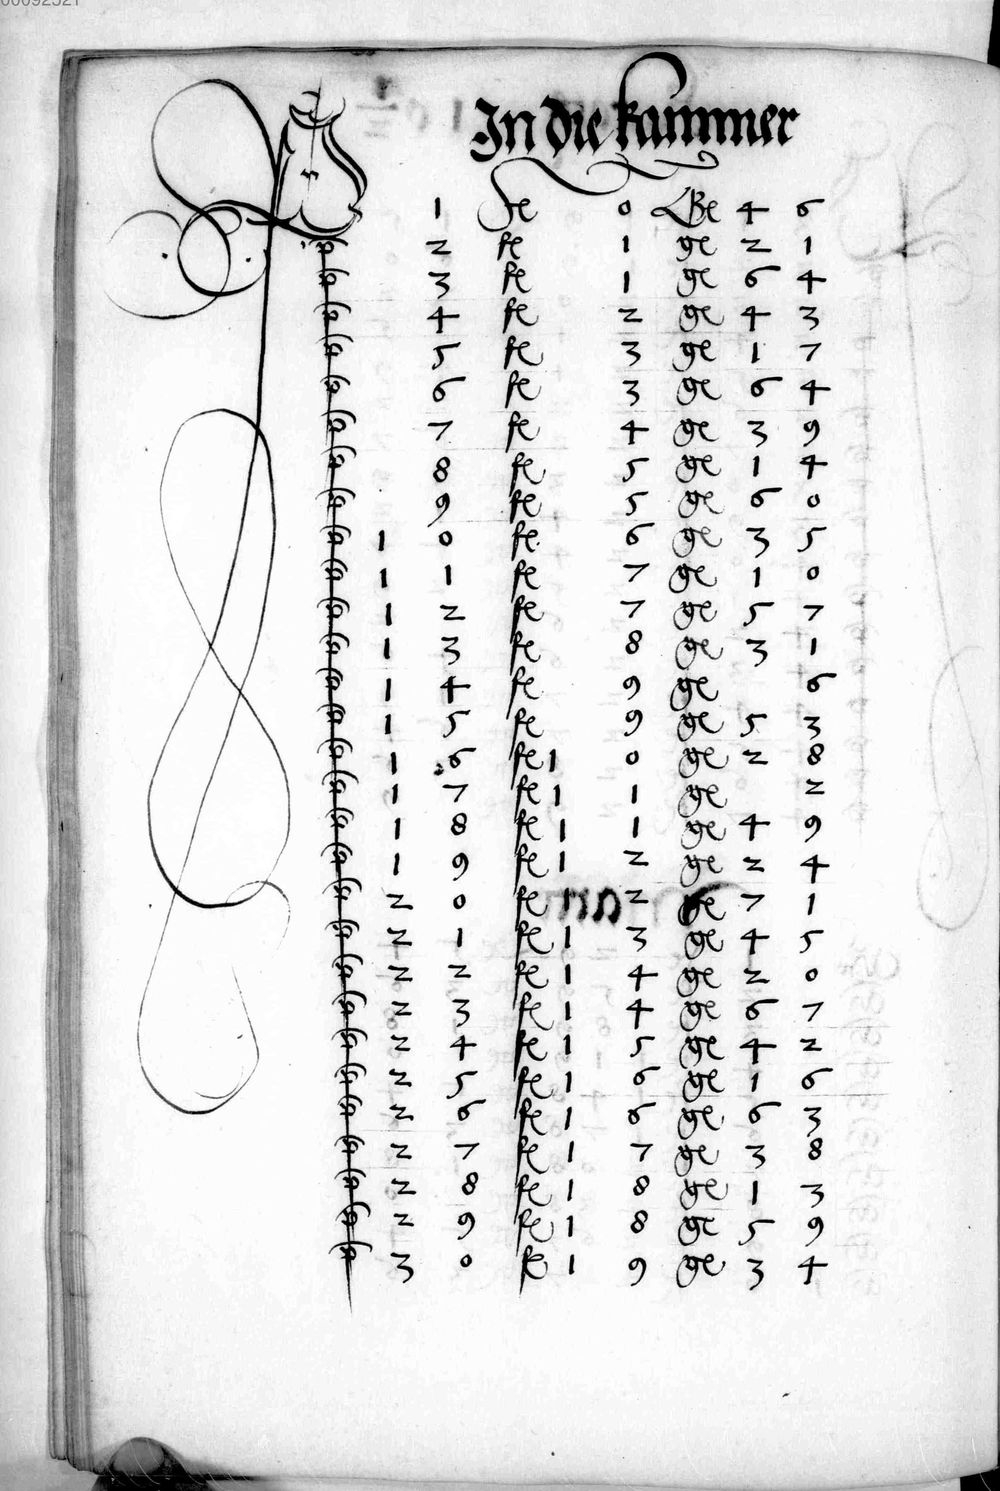 00092521
In die kammer
1 fl 0 ge 4 6
2 fl 1 ge 2 1
3 fl 1 ge 6 4
4 fl 2 ge 4 3
5 fl 3 ge 1 7
6 fl 3 ge 6 4
7 fl 4 ge 3 9
8 fl 5 ge 1 4
9 fl 5 ge 6 0
1 0 fl 6 ge 3 5
1 1 fl 7 ge 1 0
1 2 fl 7 ge 5 7
1 3 fl 8 ge 3 1
1 4 fl 9 ge 6
1 5 fl 9 ge 5 3
1 6 fl 1 0 ge 2 8
1 7 fl 1 1 ge 2
1 8 fl 1 1 ge 4 9
1 9 fl 1 2 ge 2 4
2 0 fl 2 ge 7 1
2 1 fl 1 3 ge 4 5
2 2 fl 1 4 ge 2 0
2 3 fl 1 4 ge 6 7
2 4 fl 1 5 ge 4 2
2 5 fl 1 6 ge 1 6
2 6 fl 1 6 ge 6 3
2 7 fl 1 7 ge 3 8
2 8 fl 1 8 ge 1 3
2 9 fl 1 8 ge 5 9
3 0 fl 1 9 ge 3 4